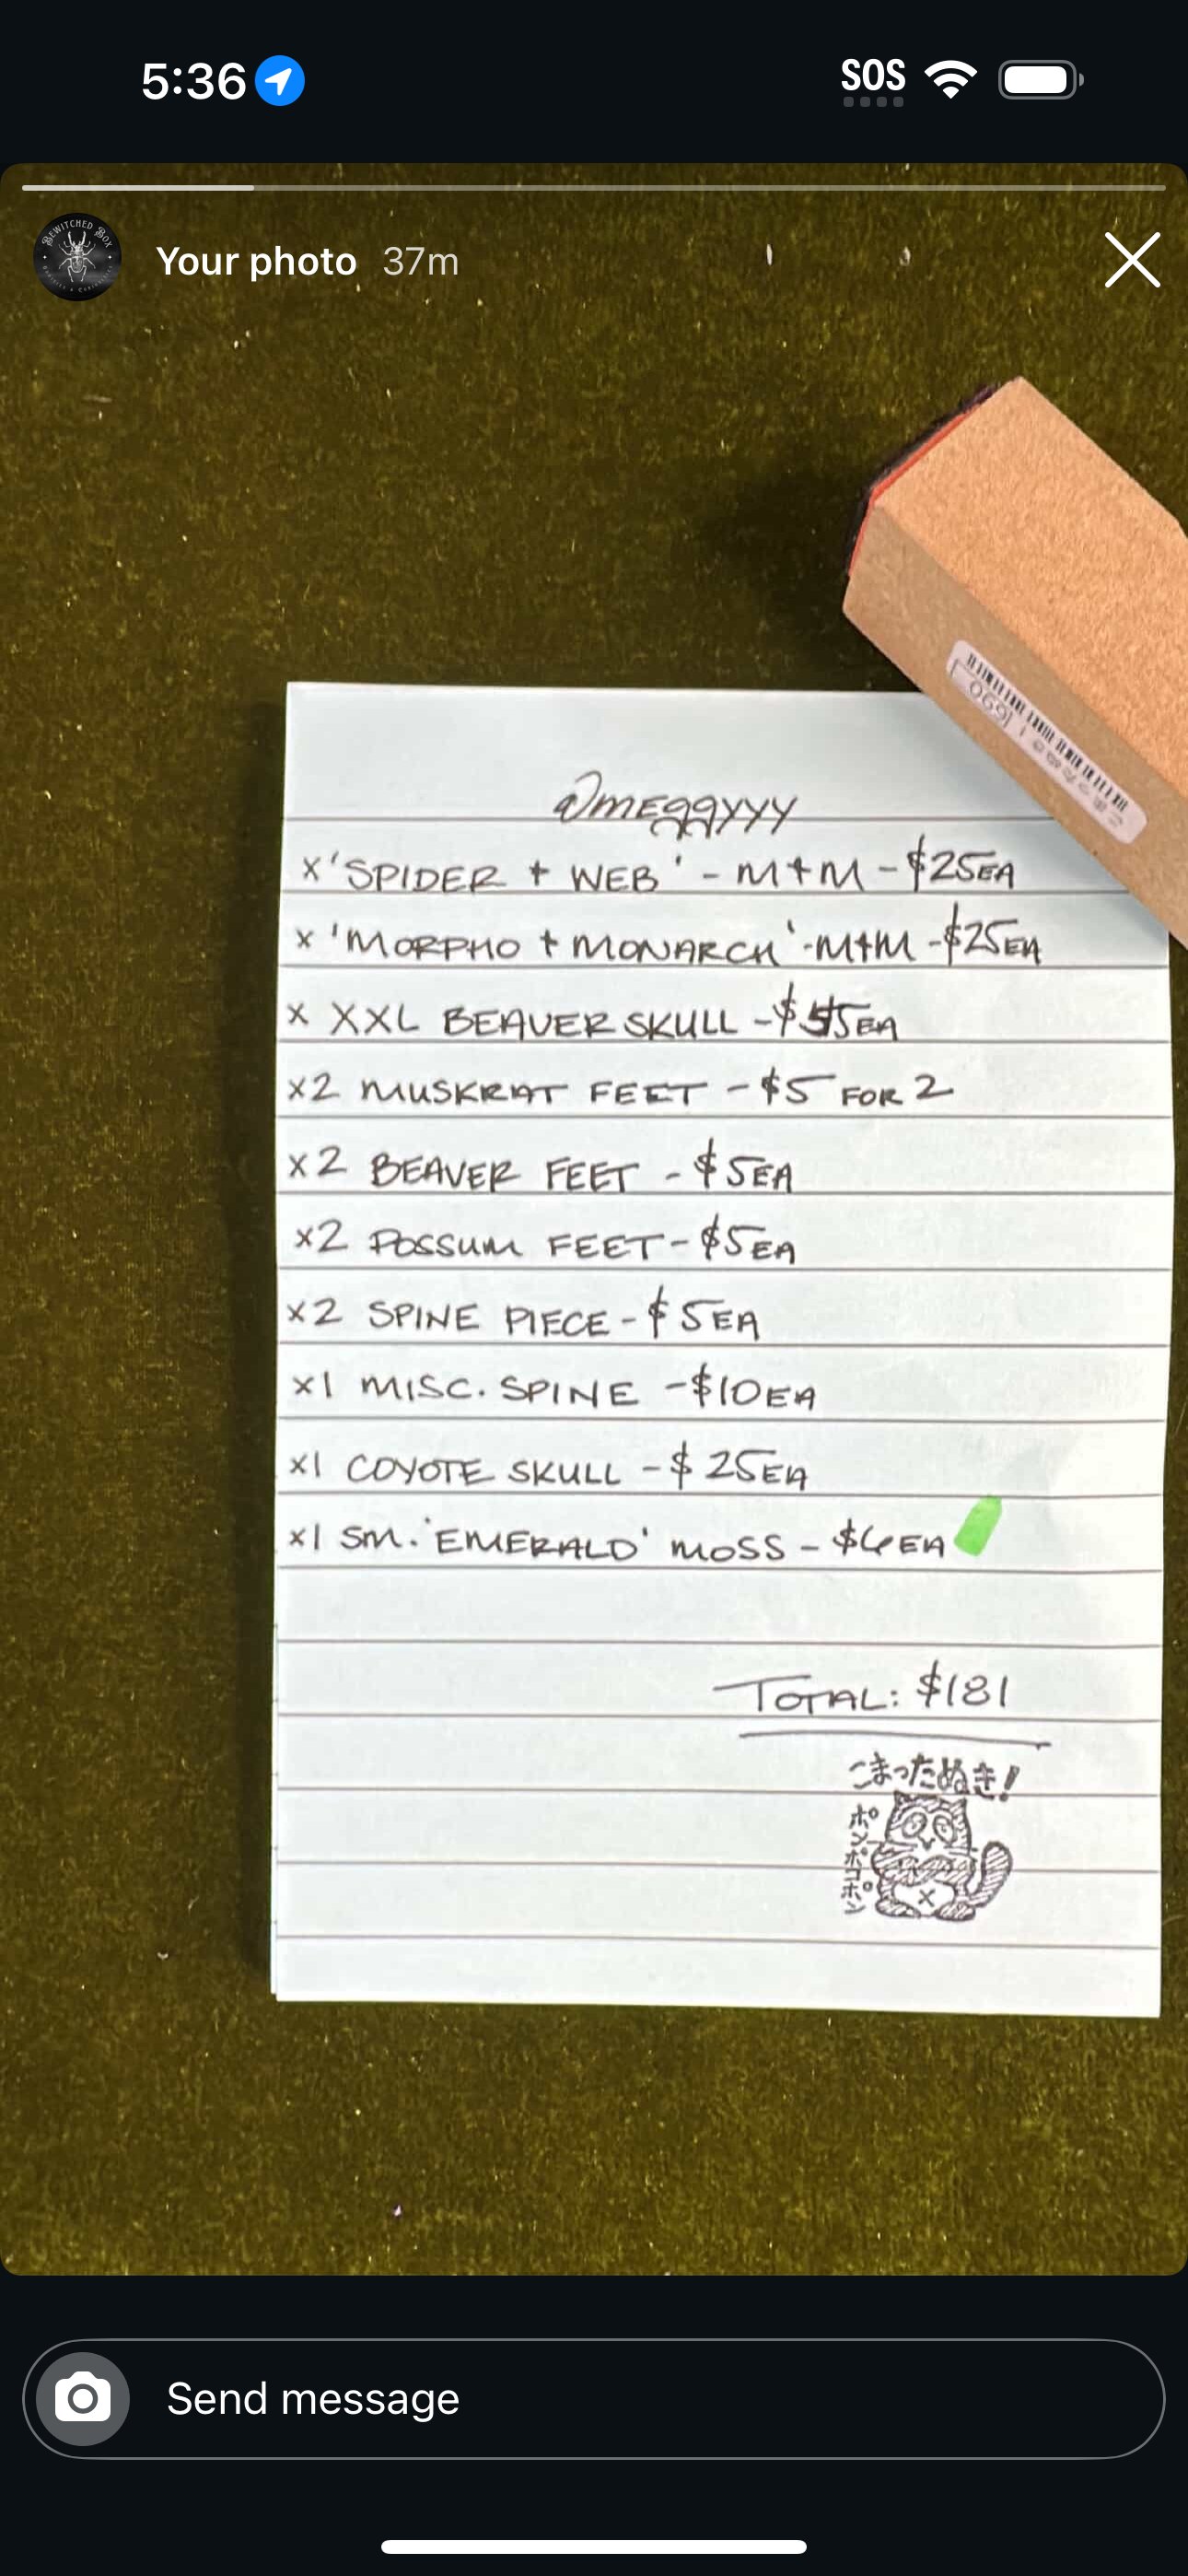 5:36
SOS
BEWITCHED BOX
Your photo 37m
@meggyyy
x 'SPIDER + WEB' - M+M - $25EA
x 'MORPHO + MONARCH' - M+M - $25EA
x XXL BEAVER SKULL - $55EA
x2 MUSKRAT FEET - $5 FOR 2
x2 BEAVER FEET - $5EA
x2 POSSUM FEET - $5EA
x2 SPINE PIECE - $5EA
x1 MISC. SPINE - $10EA
x1 COYOTE SKULL - $25EA
x1 SM. 'EMERALD' MOSS - $6EA
TOTAL: $181
こまったぬき!
ポンポコポン
Send message